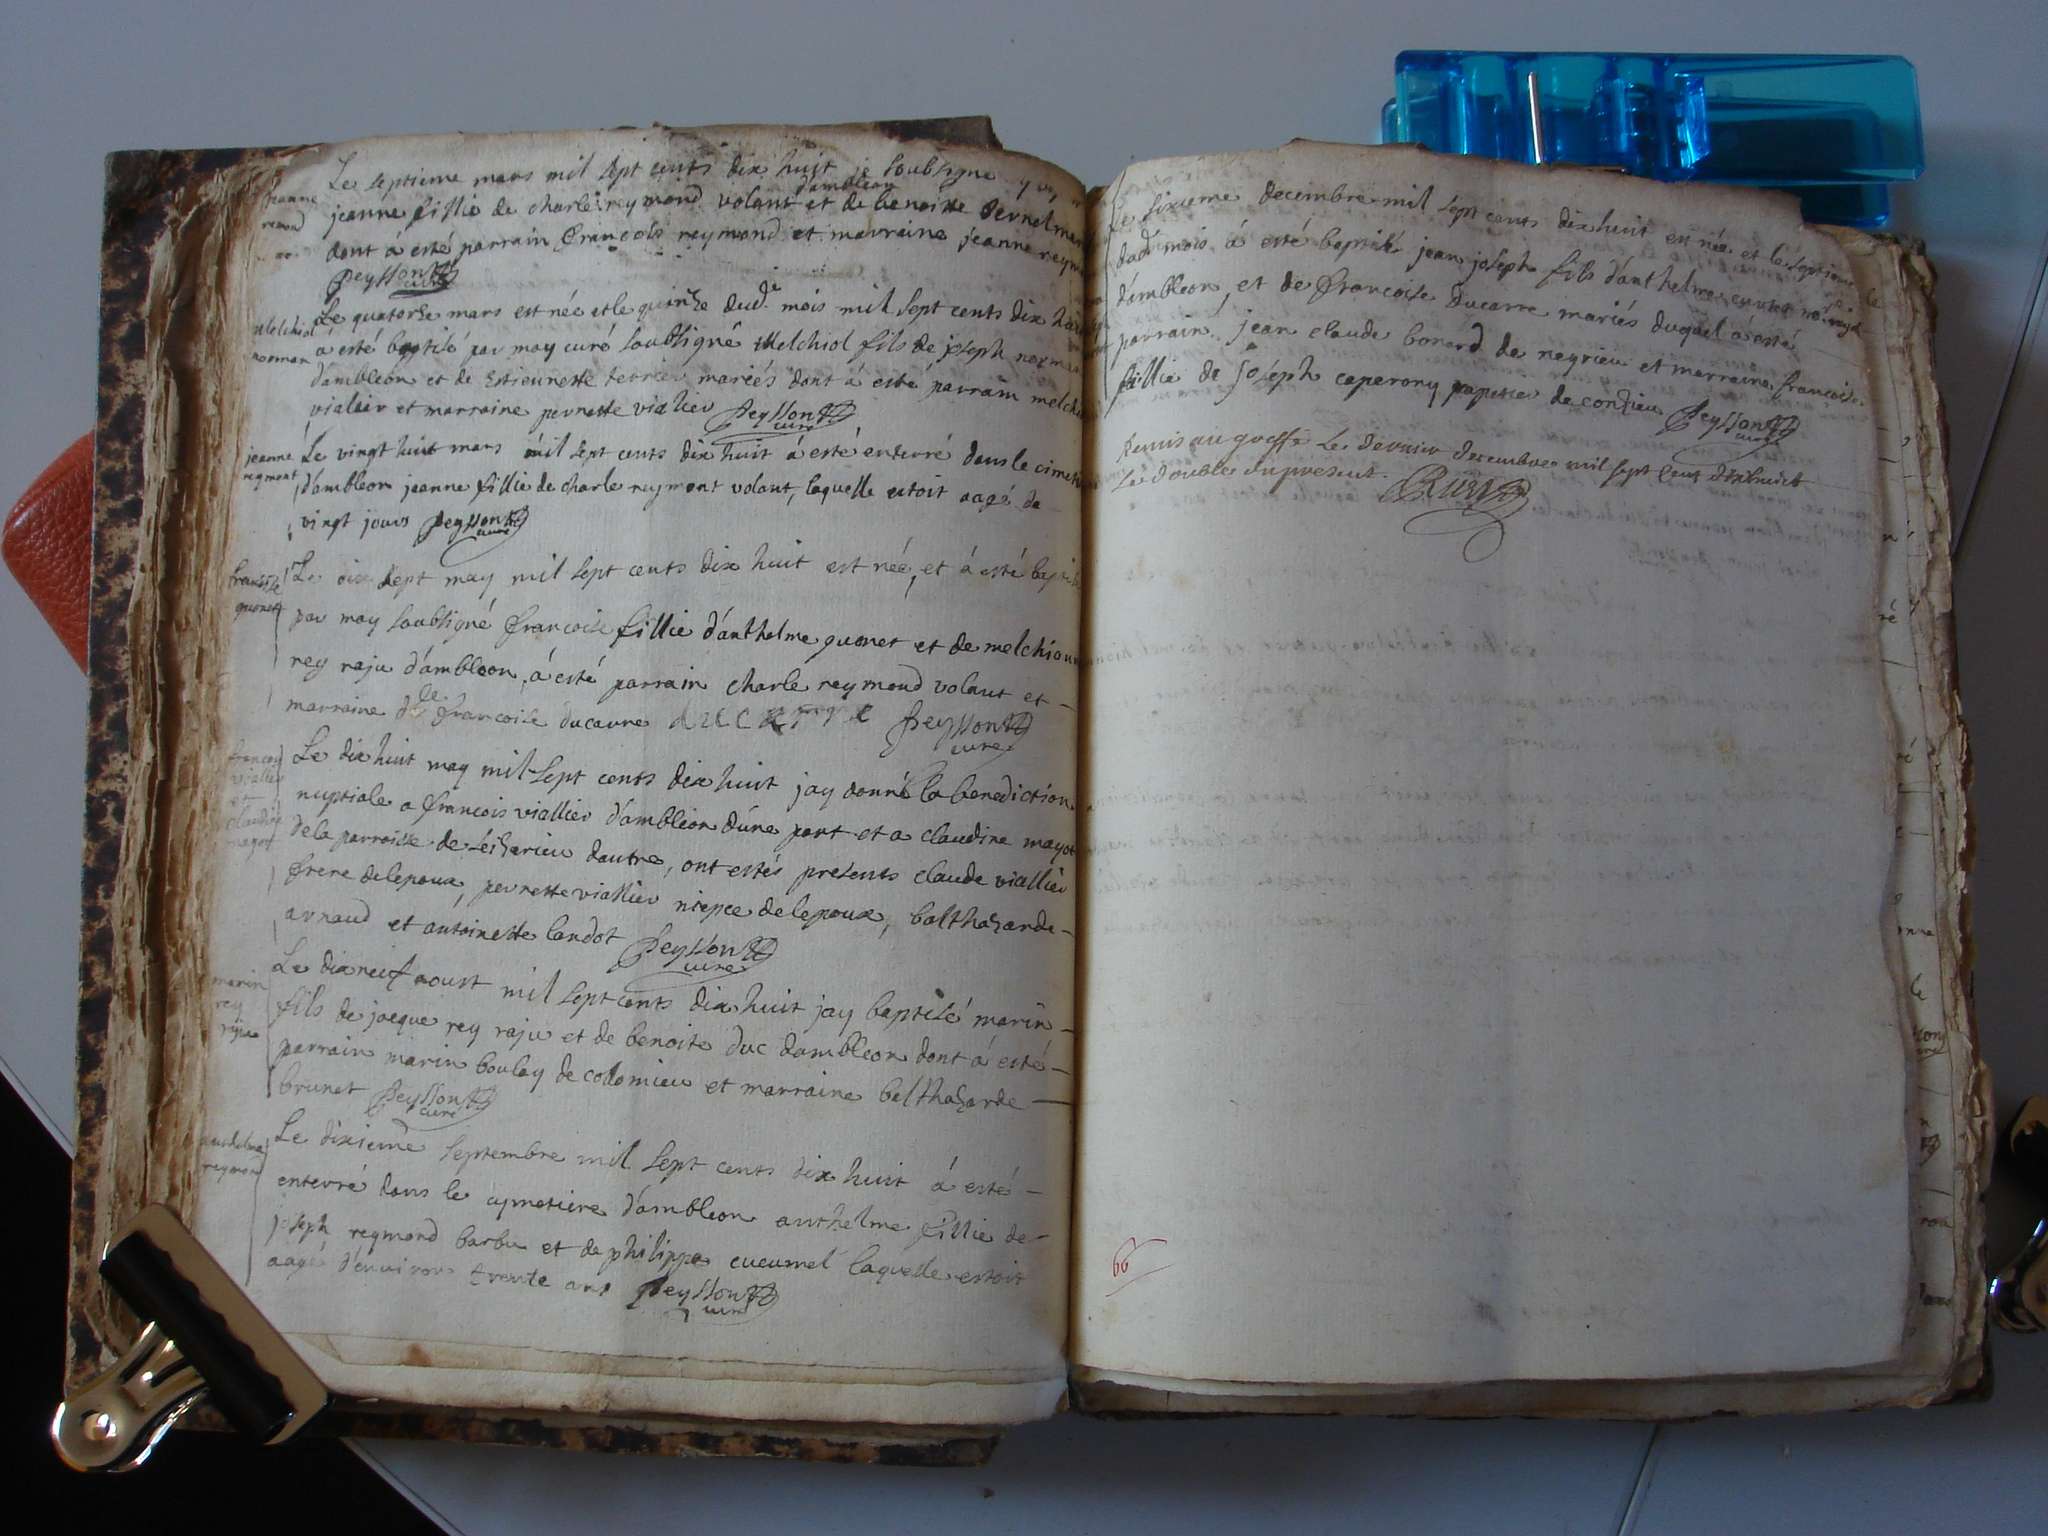 Le septieme mars mil sept cents dix huit je soubsigne
jeanne
remond
dambleon
jeanne fillie de charle reymond volant et de benoitte
dont á esté parrain françois reymond et marraine jeanne
Peysson curé
Le quatorze mars est née et le quinze dud.t mois mil sept cents dix
Melchiol
norman
a esté baptisé par moy curé soubsigné Melchiol fils de joseph
d'ambleon et de Estiennette terrier mariés dont á esté parrain
vialier et marraine pernette vialier Peysson curé
jeanne
reymont
Le vingt huit mars mil sept cents dix huit á esté enterré dans le
d'ambleon jeanne fillie de charle reymont volant, laquelle estoit aagé de
vingt jours Peysson curé
quonet
Le dix sept may mil sept cents dix huit est née, et á esté
par moy soubsigné françoise fillie d'anthelme quonet et de
rey raju d'ambleon, á esté parrain charle reymond volant et
marraine d.lle françoise ducarre Peysson curé
françois
viallier
et
claudine
mayot
Le dix huit may mil sept cents dix huit jay donné la benediction
nuptiale a françois viallier d'ambleon d'une part et a claudine mayot
de la parroisse de dautre, ont estés presents claude viallier
frere de lepoux, pernette viallier niepce de lepoux, balthazarde
arnaud et antoinette landot Peysson curé
marin
rey
raju
Le dixneuf aoust mil sept cents dix huit jay baptisé marin
fils de jacque rey raju et de benoite duc dambleon dont á esté
parrain marin boulay de colomieu et marraine balthazarde
brunet Peysson curé
reymond
Le dixieme septembre mil sept cents dix huit á esté
enterré dans le cymetiere d'ambleon anthelme fillie de
joseph reymond barbu et de philippe cucumel laquelle estoit
aagé d'environ trente ans Peysson curé
Le sixieme decembre mil sept cents dix huit est née et le septieme
dud.t mois á esté baptisé jean joseph fils d'anthelme
d'ambleon, et de françoise Ducarre mariés duquel a esté
parrain jean claude bonard de neyrieu et marraine françoise
fillie de joseph caperony de conzieu Peysson curé
Remis au greffe le dernier decembre mil sept cent dixhuict
le double du present.
66